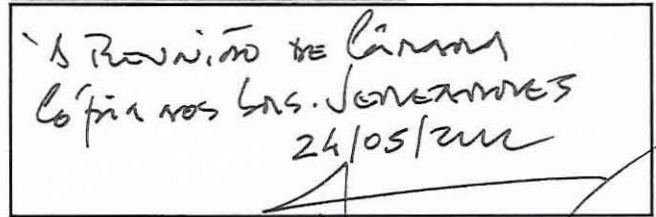 À Reunião de Câmara
Cópia aos Srs. Vereadores
24/05/2022